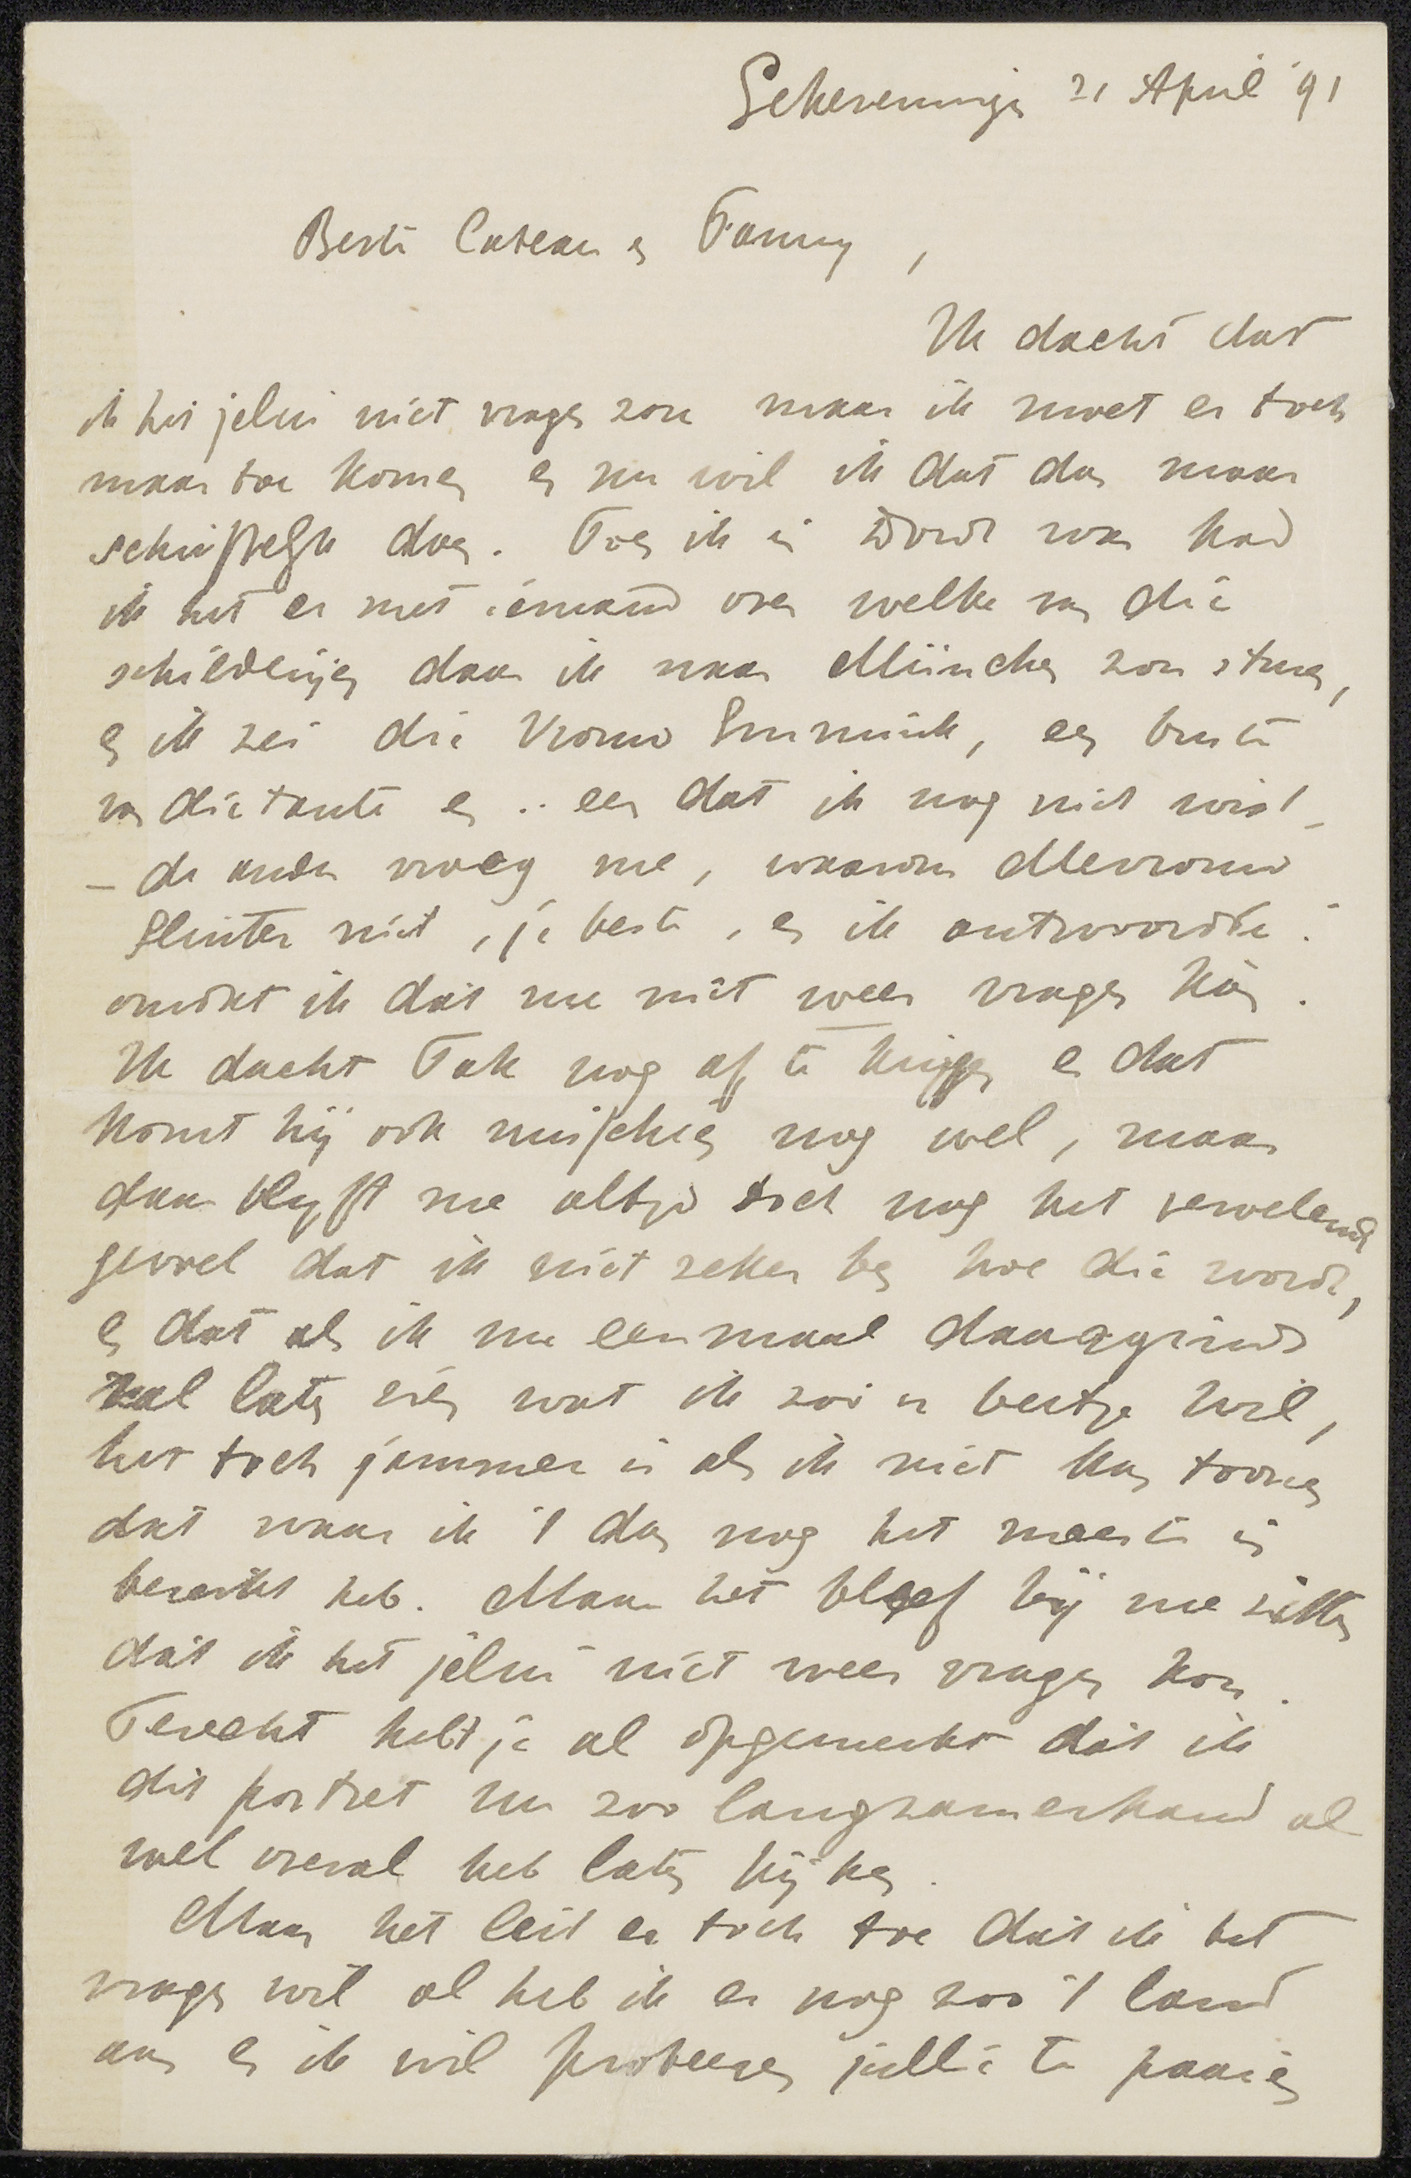 Scheveningen 21 April '91
Beste Cateau en Fanny,
Ik dacht dat
ik het jelui niet vragen zou maar ik moet er toch
maar toe komen en nu wil ik dat dan maar
schriftelijk doen. Toen ik in Dordt was had
ik het er met iemand over welke van die
schilderijen daar ik naar München zou sturen,
en ik zei die Vrouw Smmink, een buste
van die tante en .. een dat ik nog niet wist_
_ de ander vroeg me, waarom Mevrouw
Sluiter niet, je beste, en ik antwoordde:
omdat ik dát nu niet weer vragen kàn.
Ik dacht Tak nog af te krijgen en dat
komt hij ook misschien nog wel, maar
dan blijft me altijd toch nog het vervelende
gevoel dat ik niet zeker ben hoe die wordt,
en dat als ik nu eenmaal daarginds
zal laten zien wat ik zoo'n beetje wil,
het toch jammer is als ik niet kan toonen
dat waar ik 't dan nog het meeste in
bereikt heb. Maar het bleef bij me zitten
dát ik het jelui niet weer vragen kon.
Terecht hebt je al opgemerkt dat ik
dit portret nu zoo langzamerhand al
wel overal heb laten kijken.
Maar het leit er toch toe dat ik het
vragen wil al heb ik er nog zoo 't land
aan en ik wil probeeren jullie te paaien